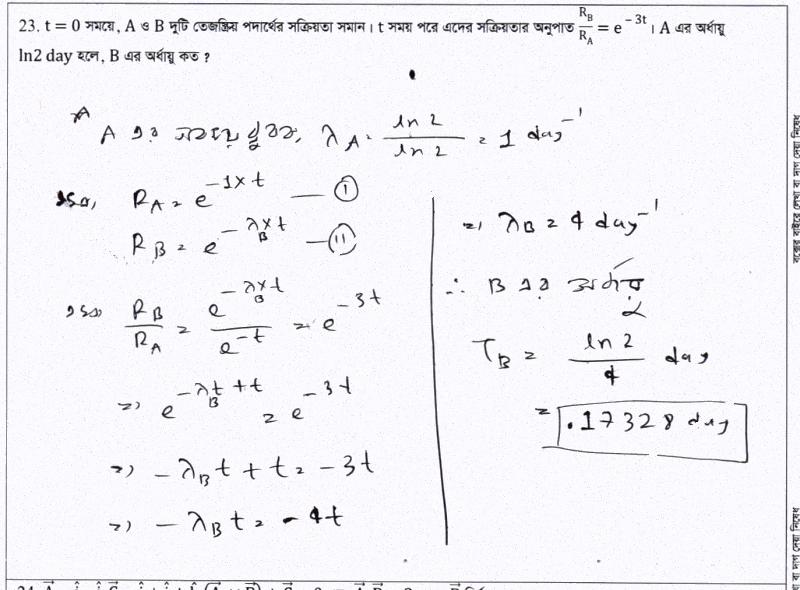 23. t = 0 সময়ে, A ও B দুটি তেজস্ক্রিয় পদার্থের সক্রিয়তা সমান। t সময় পরে এদের সক্রিয়তার অনুপাত R_B/R_A = e^{-3t}। A এর অর্ধায়ু
ln2 day হলে, B এর অর্ধায়ু কত ?
A এর λ_A = ln 2/ln 2 = 1 day^{-1}
R_A = e^{-1×t} — (i)
R_B = e^{-λ_B×t} — (ii)
R_B/R_A = e^{-λ_B×t}/e^{-t} = e^{-3t}
=> e^{-λ_B t + t} = e^{-3t}
=> -λ_B t + t = -3t
=> -λ_B t = -4t
=> λ_B = 4 day^{-1}
∴ B এর অর্ধায়ু
T_B = ln 2/4 day
= .17328 day
বক্সের বাইরে লেখা বা দাগ দেয়া নিষেধ
বা দাগ দেয়া নিষেধ